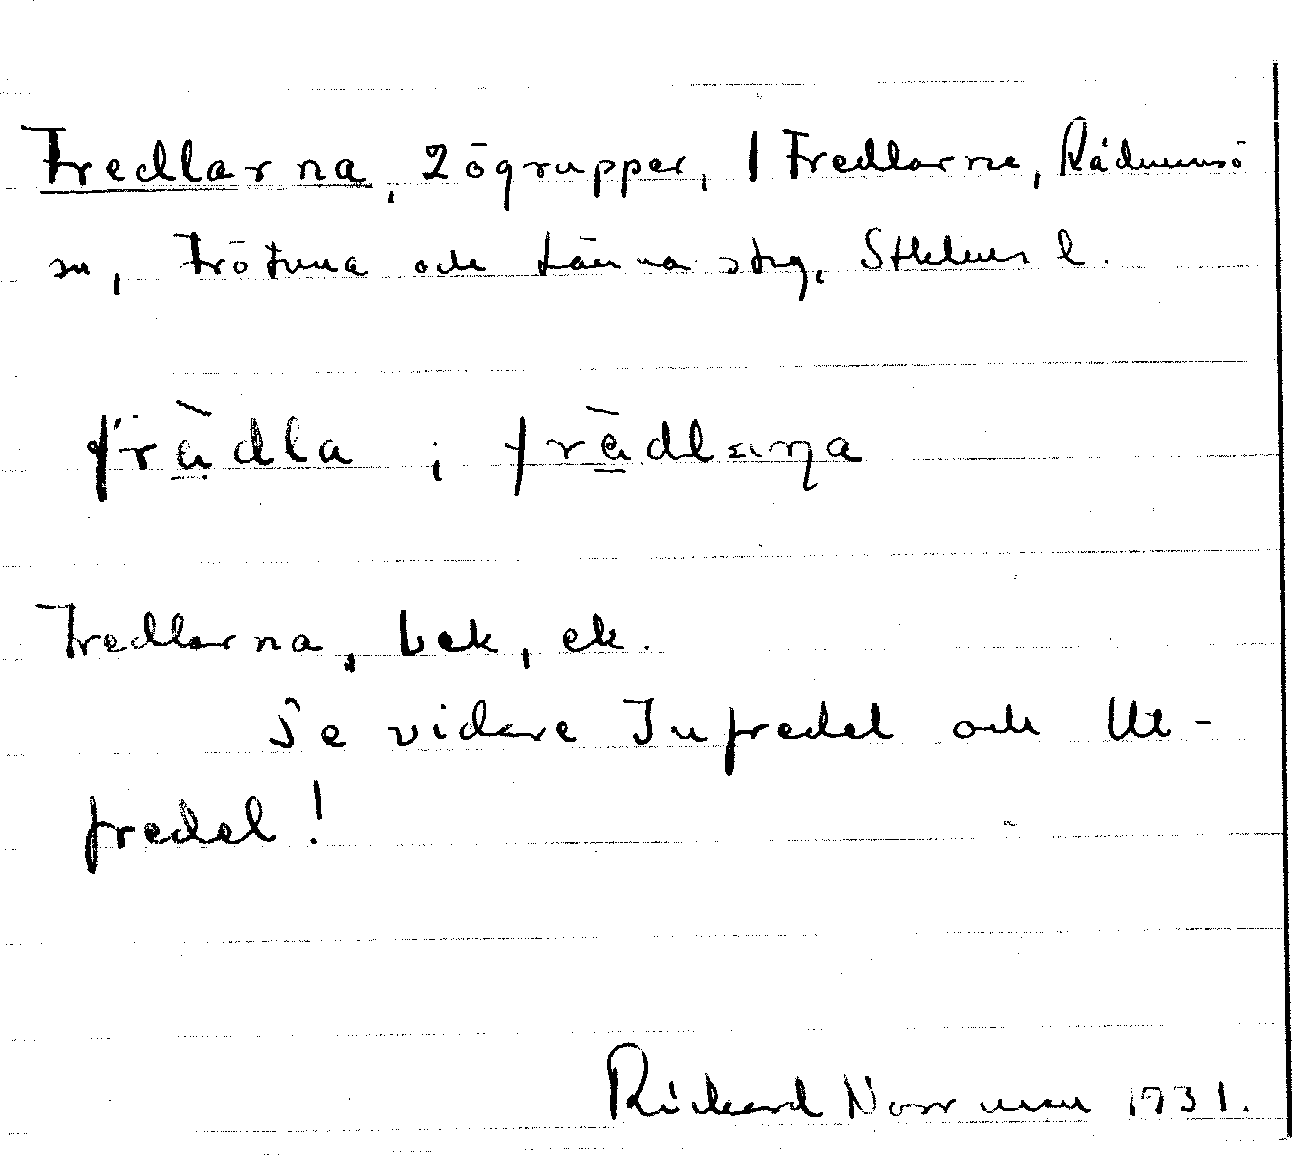 Fredlarna, 2 ögrupper, | Fredlarne, Rådmansö
sn, Frötuna och Länna skg, Sthlms l.
frädla ; frädlaṇa
Fredlarna, bek, ek.
Se vidare Infredel och Ut-
fredel!
Rickard Norrman 1931.